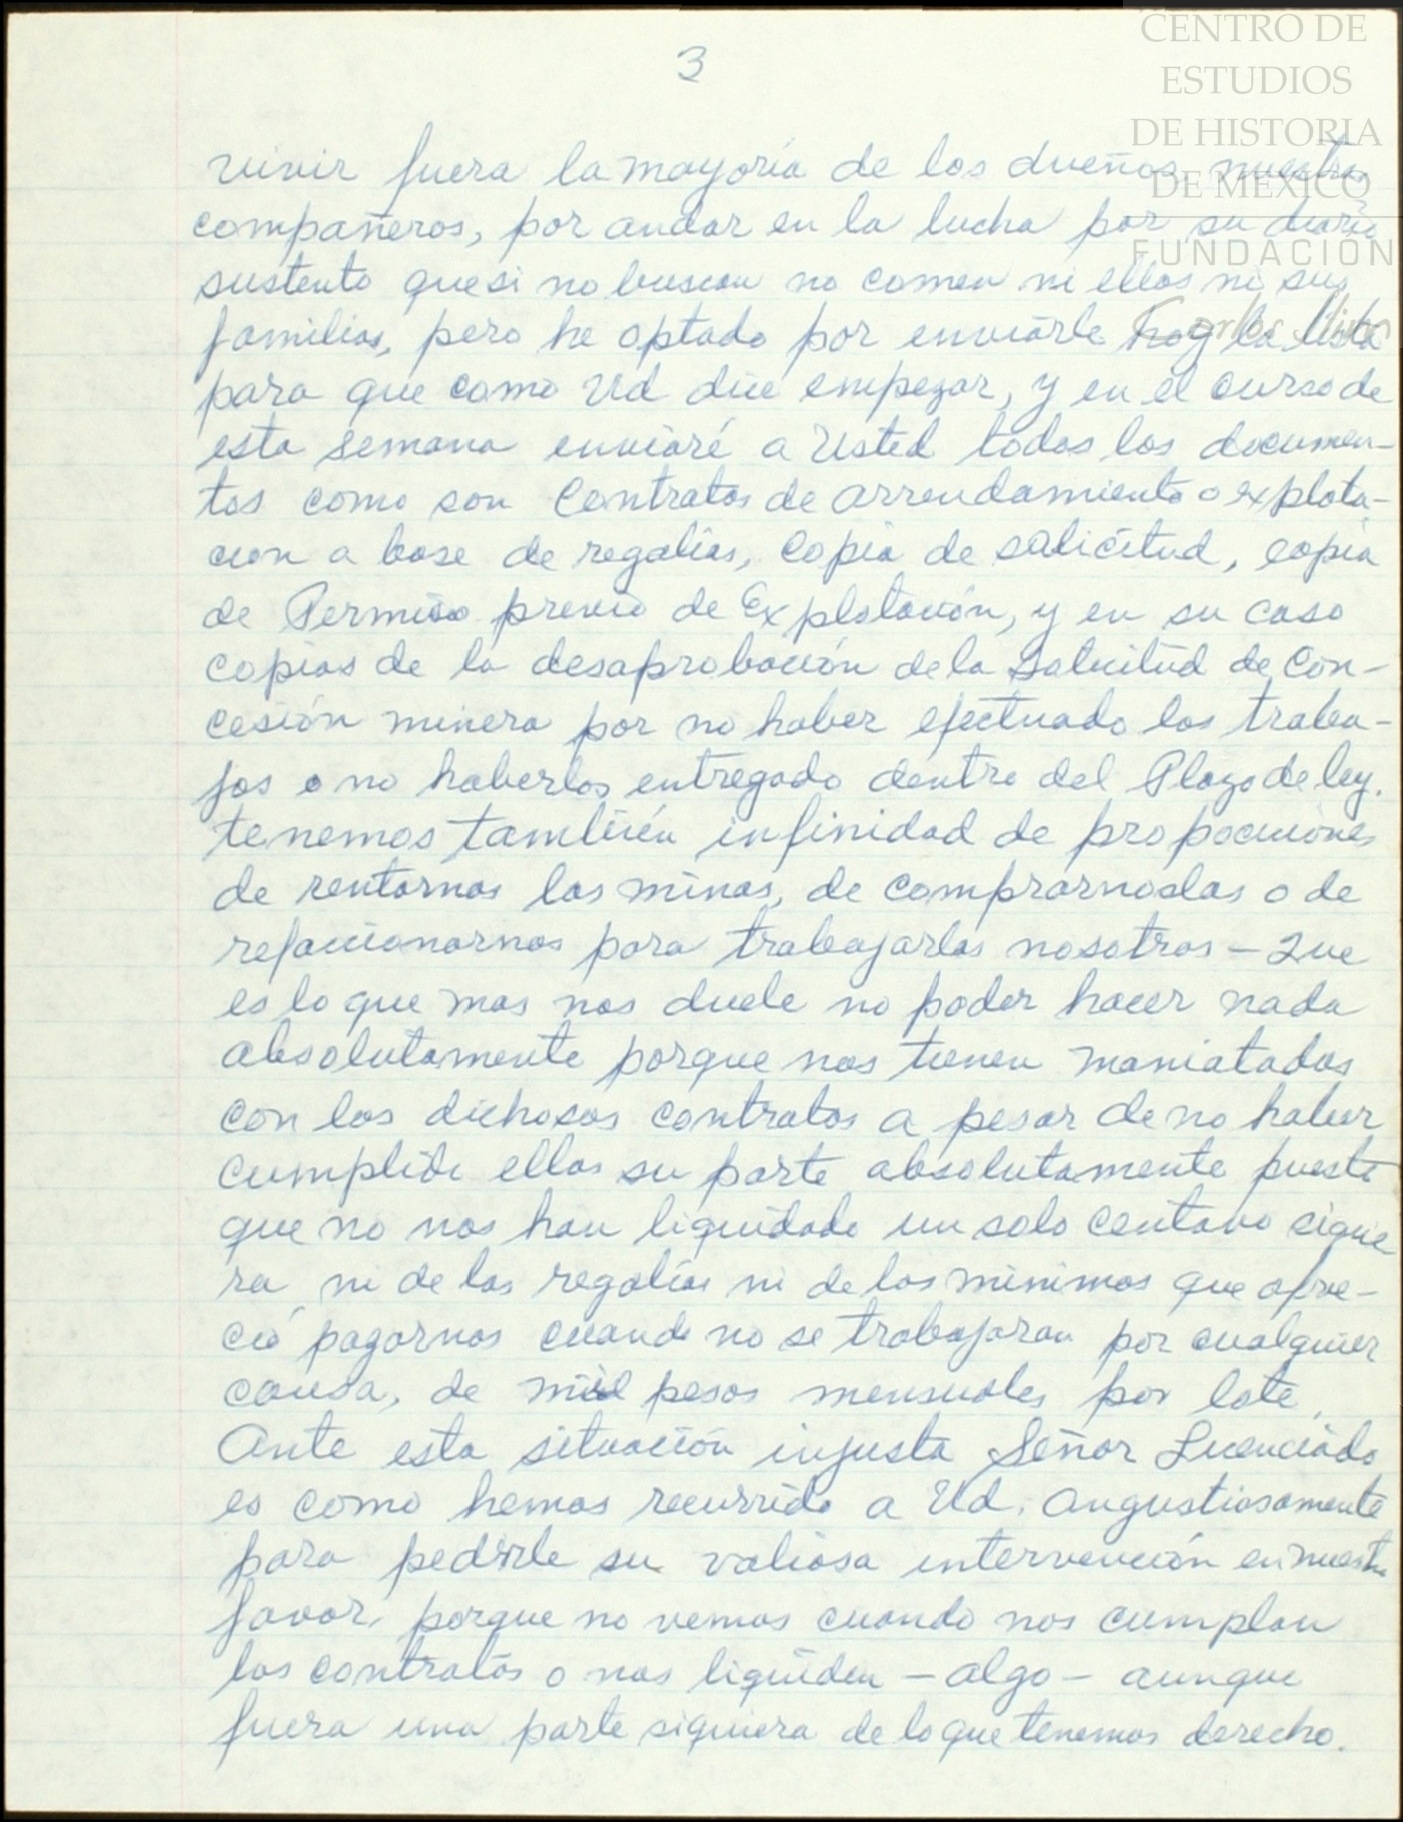 CENTRO DE
ESTUDIOS
DE HISTORIA
DE MÉXICO
FUNDACIÓN
Carlos Slim
3
vivir fuera la mayoría de los dueños, nuestros
compañeros, por andar en la lucha por su diario
sustento que si no buscan no comen ni ellos ni sus
familias, pero he optado por enviarle hoy la lista
para que como Ud dice empezar, y en el curso de
esta semana enviaré a Usted todos los documen-
tos como son Contratos de arrendamiento o explota-
cion a base de regalías, copia de solicitud, copia
de Permiso previo de Explotación, y en su caso
copias de la desaprobación de la solicitud de Con-
cesión minera por no haber efectuado los traba-
jos o no haberlos entregado dentro del Plazo de ley.
tenemos también infinidad de proposiciones
de rentarnos las minas, de comprarnoslas o de
refaccionarnos para trabajarlas nosotros - Que
es lo que mas nos duele no poder hacer nada
absolutamente porque nos tienen maniatados
con los dichosos contratos a pesar de no haber
cumplido ellos su parte absolutamente puesto
que no nos han liquidado un solo centavo siquie
ra, ni de las regalías ni de los mínimos que ofre-
ció pagarnos cuando no se trabajaran por cualquier
causa, de mil pesos mensuales por lote,
Ante esta situación injusta Señor Licenciado
es como hemos recurrido a Ud. angustiosamente
para pedirle su valiosa intervención en nuestro
favor, porque no vemos cuando nos cumplan
los contratos o nos liquiden - algo - aunque
fuera una parte siquiera de lo que tenemos derecho.